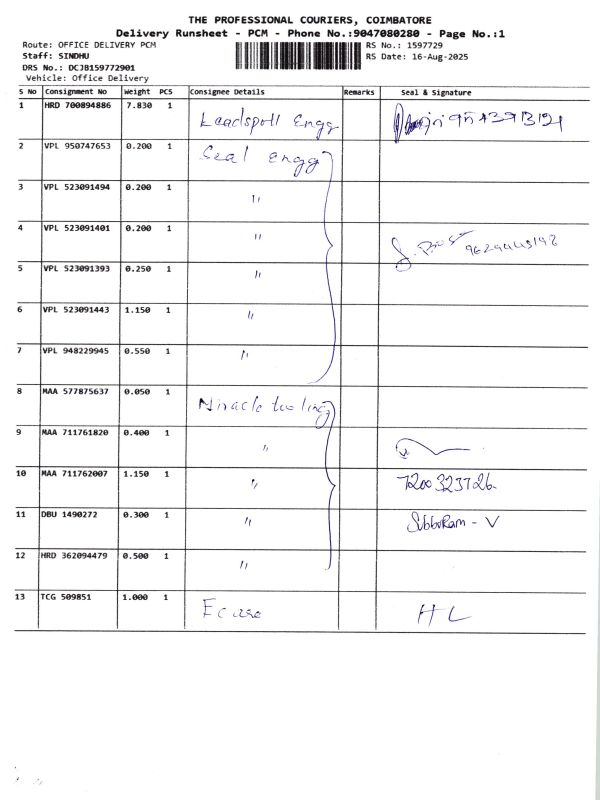 THE PROFESSIONAL COURIERS, COIMBATORE
Delivery Runsheet - PCM - Phone No.:9047080280 - Page No.:1
Route: OFFICE DELIVERY PCM
RS No.: 1597729
Staff: SINDHU
RS Date: 16-Aug-2025
DRS No.: DCJB159772901
Vehicle: Office Delivery
S No Consignment No Weight PCS Consignee Details Remarks Seal & Signature
1 HRD 700894886 7.830 1 Leadspoll Engg
2 VPL 950747653 0.200 1 Seal engg
3 VPL 523091494 0.200 1 "
4 VPL 523091401 0.200 1 "
5 VPL 523091393 0.250 1 "
6 VPL 523091443 1.150 1 "
7 VPL 948229945 0.550 1 "
8 MAA 577875637 0.050 1 Miracle tooling
9 MAA 711761820 0.400 1 "
10 MAA 711762007 1.150 1 " 7200323726
11 DBU 1490272 0.300 1 " Subburam - V
12 HRD 362094479 0.500 1 "
13 TCG 509851 1.000 1 HL